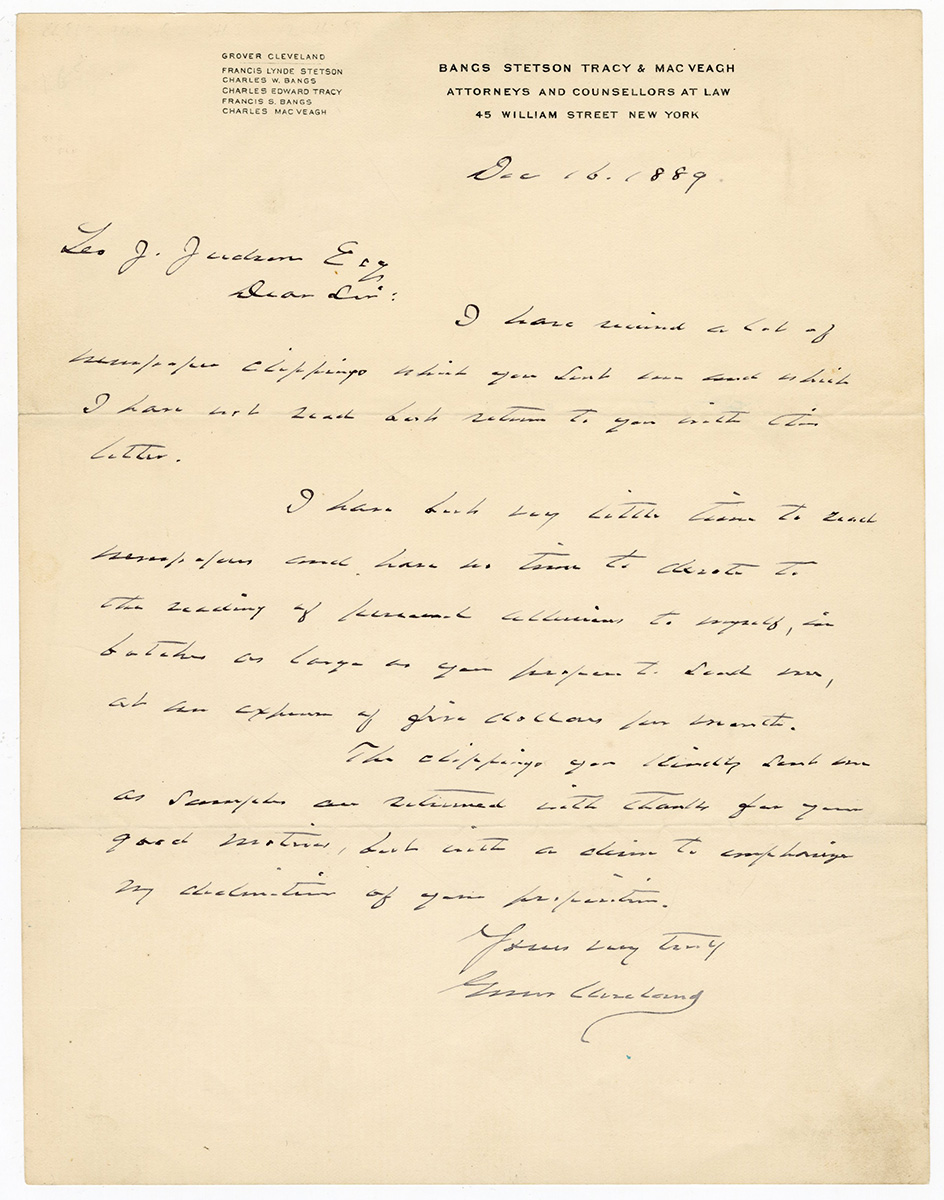 GROVER CLEVELAND
FRANCIS LYNDE STETSON
CHARLES W. BANGS
CHARLES EDWARD TRACY
FRANCIS S. BANGS
CHARLES MAC VEAGH
BANGS STETSON TRACY & MAC VEAGH
ATTORNEYS AND COUNSELLORS AT LAW
45 WILLIAM STREET NEW YORK
Dec 16. 1889.
J. Judson Esq
Dear Sir:
I have received a lot of
newspaper clippings which you sent me and which
I have not read but return to you with this
letter.
I have but very little time to read
newspapers and have no time to devote to
the reading of personal allusions to myself, in
batches as large as you propose to send me,
at an expense of five dollars per month.
The clippings you kindly sent me
as samples are returned with thanks for your
good motives, but with a desire to emphasize
my declination of your proposition.
Yours very truly
Grover Cleveland